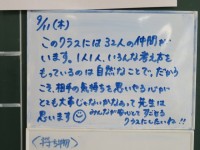 9/11(木)
このクラスには32人の仲間が
います。1人1人、いろんな考え方を
もっているのは自然なことで、だから
こそ、相手の気持ちを思いやる心が
とても大事じゃないかなって先生は
思います
みんなが安心してすごせる
クラスにしたいね!!
〈持ち物〉